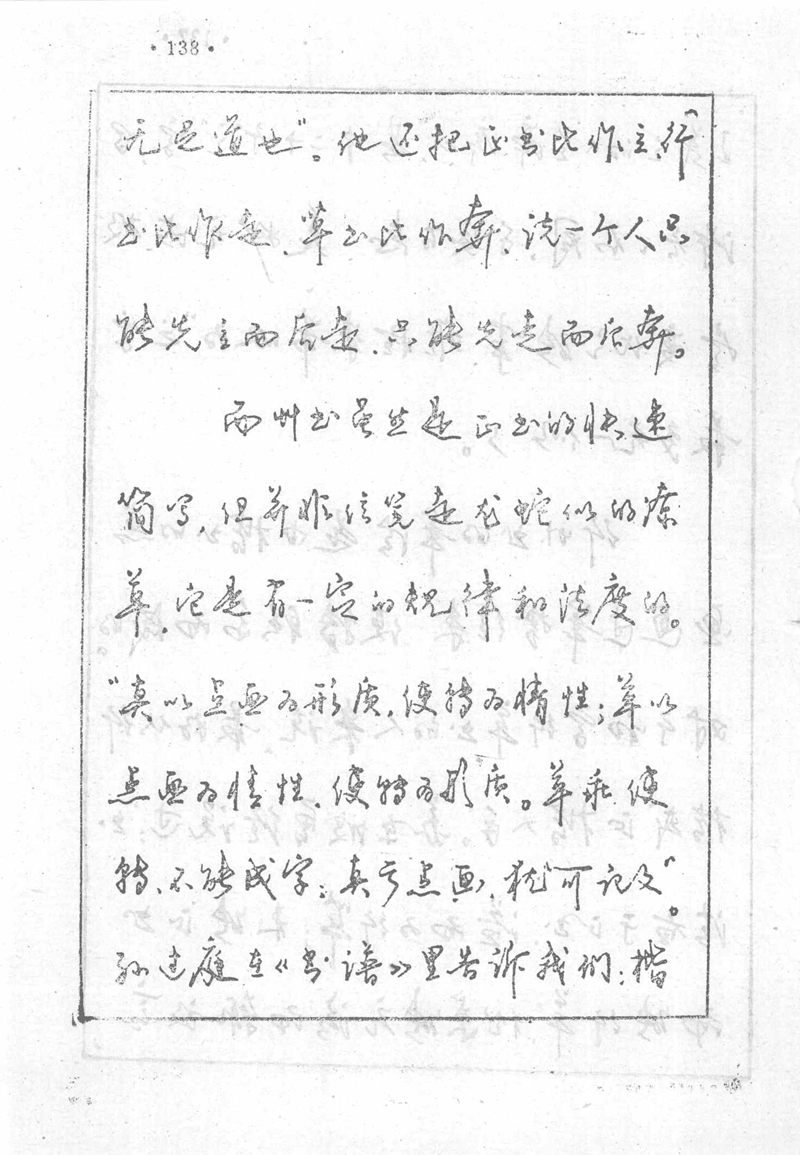 ·138·
无是道也”。他还把正书比作立，行
书比作走，草书比作奔，说一个人只
能先立而后走，只能先走而后奔。
而草书虽然是正书的快速
简写，但并非信笔走龙蛇似的潦
草，它是有一定的规律和法度的。
“真以点画为形质，使转为情性；草以
点画为情性，使转为形质。草乖使
转，不能成字；真亏点画，犹可记文”。
孙过庭在《书谱》里告诉我们：楷